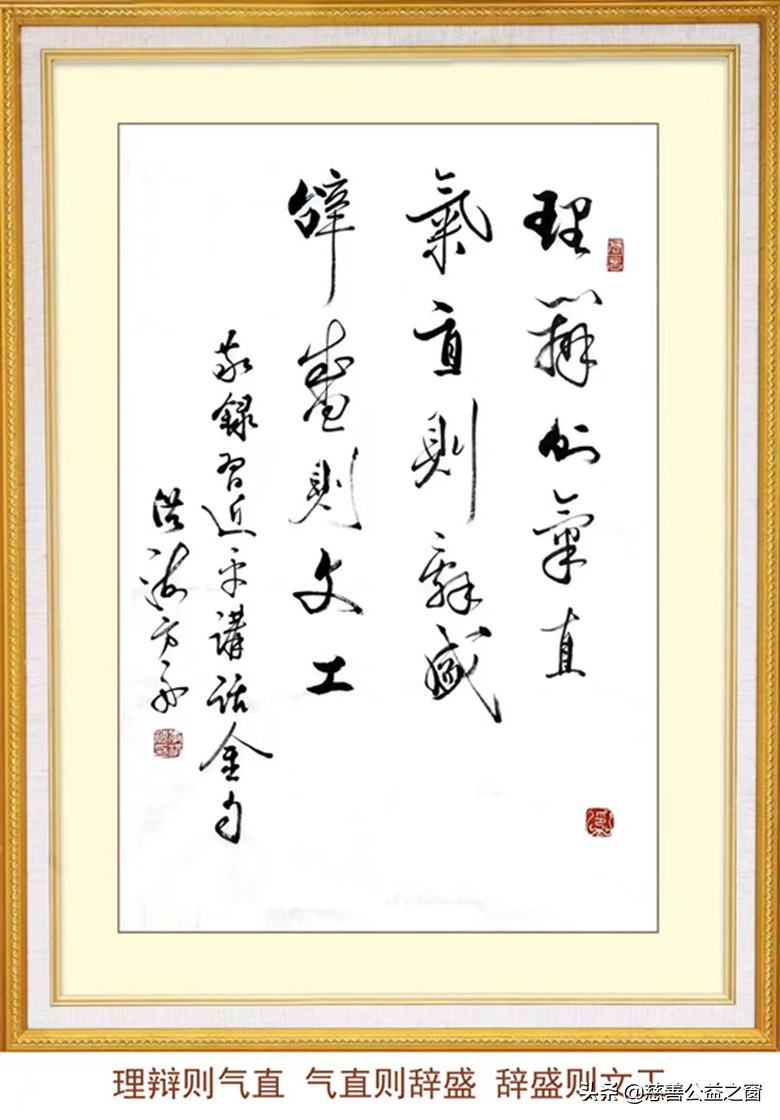 理辯则氣直
氣直則辭盛
辭盛則文工
敬録習近平講話金句
理辩则气直 气直则辞盛 辞盛则文工
头条@慈善公益之窗